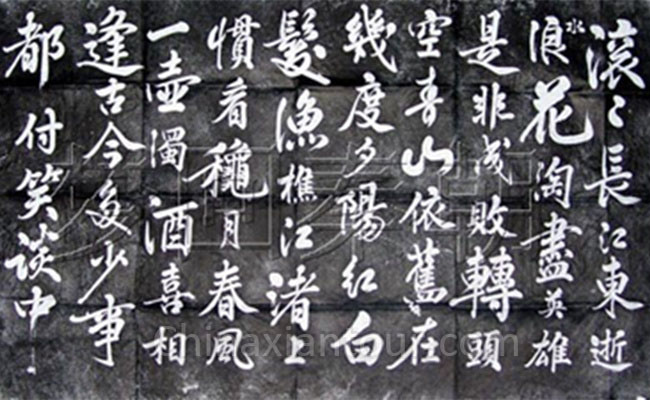 滚〻長江東逝
水浪花淘盡英雄
是非成敗轉頭
空青山依舊在
幾度夕陽紅白
髮漁樵江渚上
慣看龝月春風
一壺濁酒喜相
逢古今多少事
都付笑談中